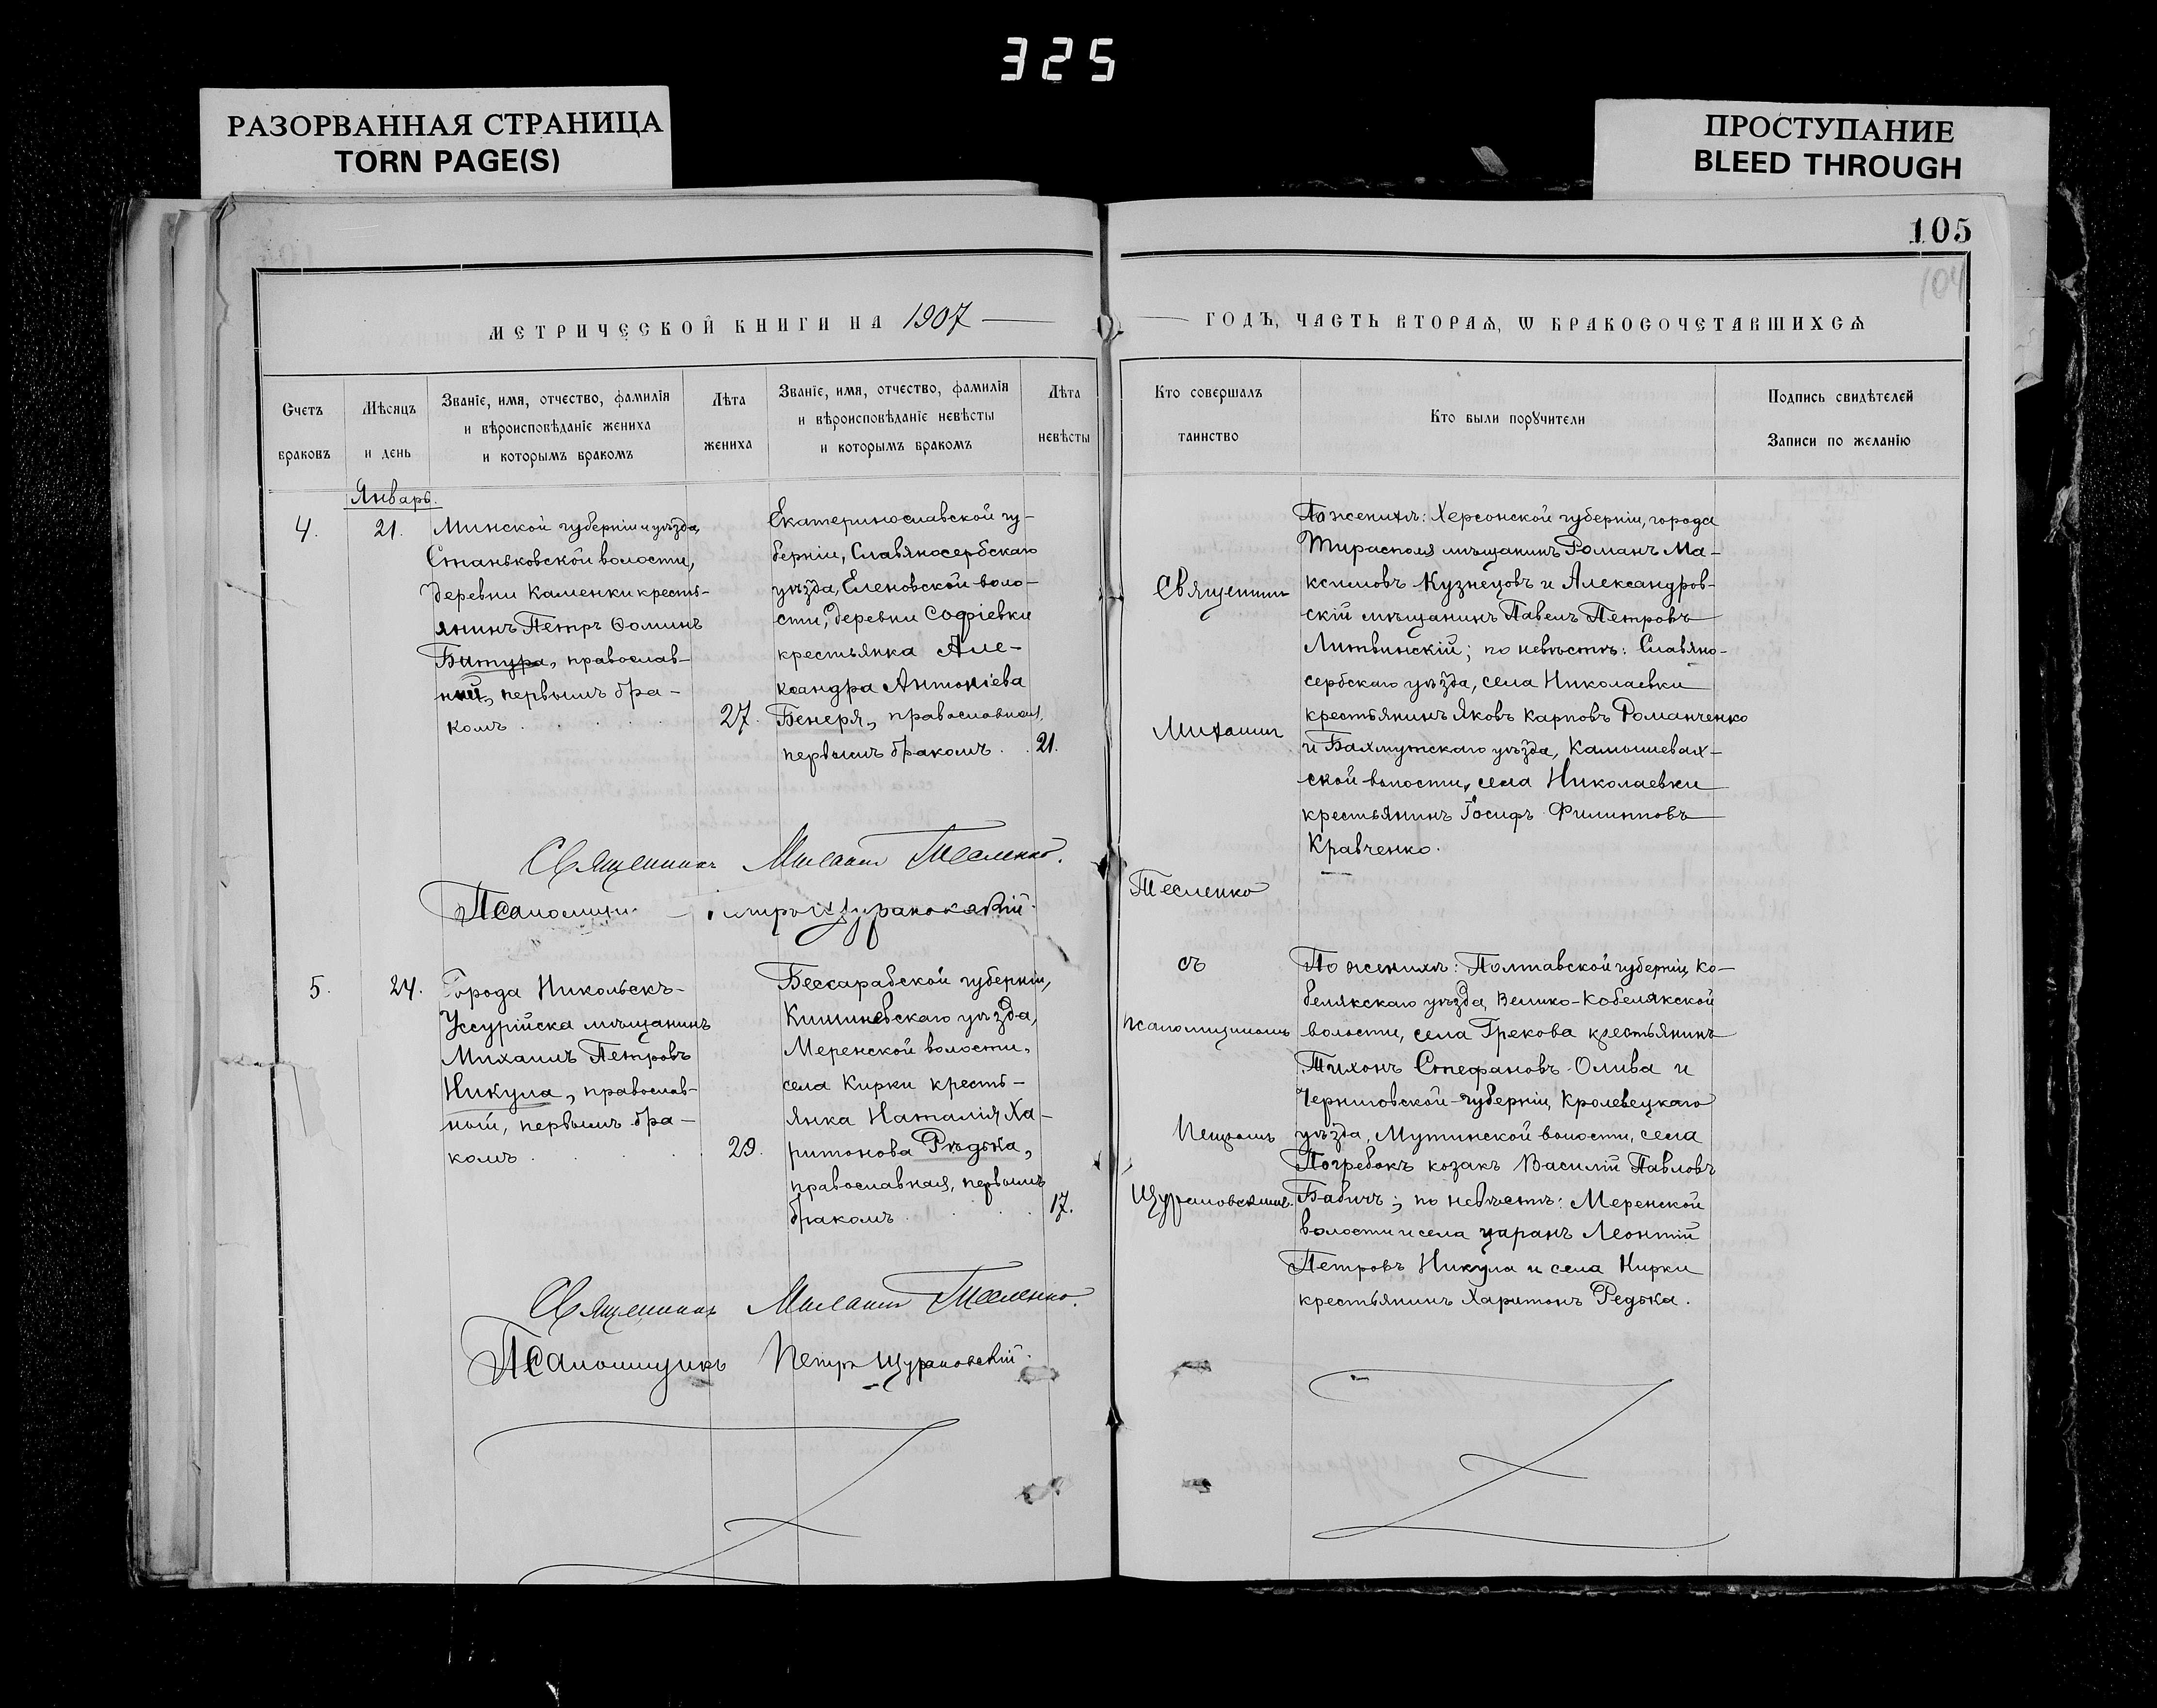 325
РАЗОРВАННАЯ СТРАНИЦА
TORN PAGE(S)
ПРОСТУПАНИЕ
BLEED THROUGH
105
104
МЕТРИЧЕСКОЙ КНИГИ НА 1907
ГОДЪ, ЧАСТЬ ВТОРАѦ, Ѡ БРАКОСОЧЕТАВШИХСѦ
Счетъ
браковъ
Мѣсяцъ
и день
Званіе, имя, отчество, фамилія
и вѣроисповѣданіе жениха
и которымъ бракомъ
Лѣта
жениха
Званіе, имя, отчество, фамилія
и вѣроисповѣданіе невѣсты
и которымъ бракомъ
Лѣта
невѣсты
Кто совершалъ
таинство
Кто были порꙋчители
Подпись свидѣтелей
Записи по желанію
Январь.
4.
21.
Минской губерніи и уѣзда,
Станьковской волости,
деревни Каменки кресть-
янинъ Петръ Ѳоминъ
Битура, православ-
ный, первымъ бра-
комъ
27.
Екатеринославской гу-
берніи, Славяносербскаго
уѣзда, Еленовской воло-
сти, деревни Софіевки
крестьянка Але-
ксандра Антоніева
Бенеря, православная,
первымъ бракомъ
21.
Священник
Михаил
Тесленко
По женихѣ: Херсонской губерніи, города
Тирасполя мѣщанинъ Романъ Ма-
ксимовъ Кузнецовъ и Александров-
скій мѣщанинъ Павелъ Петровъ
Литвинскій; по невѣстѣ: Славяно-
сербскаго уѣзда, села Николаевки
крестьянинъ Яковъ Карповъ Романченко
и Бахмутскаго уѣзда, Камышевах-
ской волости, села Николаевки
крестьянинъ Іосифъ Филипповъ
Кравченко.
Священникъ Михаил Тесленко.
Псаломщик Щурановскій.
5.
24.
Города Никольскъ-
Уссурійска мѣщанинъ
Михаилъ Петровъ
Никула, православ-
ный, первымъ бра-
комъ
29.
Бессарабской губерніи,
Кишиневскаго уѣзда,
Меренской волости,
села Кирки кресть-
янка Наталія Ха-
ритонова Рѣдька,
православная, первымъ
бракомъ
17.
съ
псаломщикомъ
Петромъ
Щурановскимъ.
По женихѣ: Полтавской губерніи, Ко-
белякскаго уѣзда, Велико-Кобелякской
волости, села Грекова крестьянинъ
Тихонъ Стефановъ Олива и
Черниговской губерніи, Кролевецкаго
уѣзда, Мутинской волости, села
Погребокъ козакъ Василій Павловъ
Бабичъ; по невѣстѣ: Меренской
волости и села царанъ Леонтій
Петровъ Никула и села Кирки
крестьянинъ Харитонъ Редька.
Священникъ Михаил Тесленко.
Псаломщикъ Петръ Щурановскій.